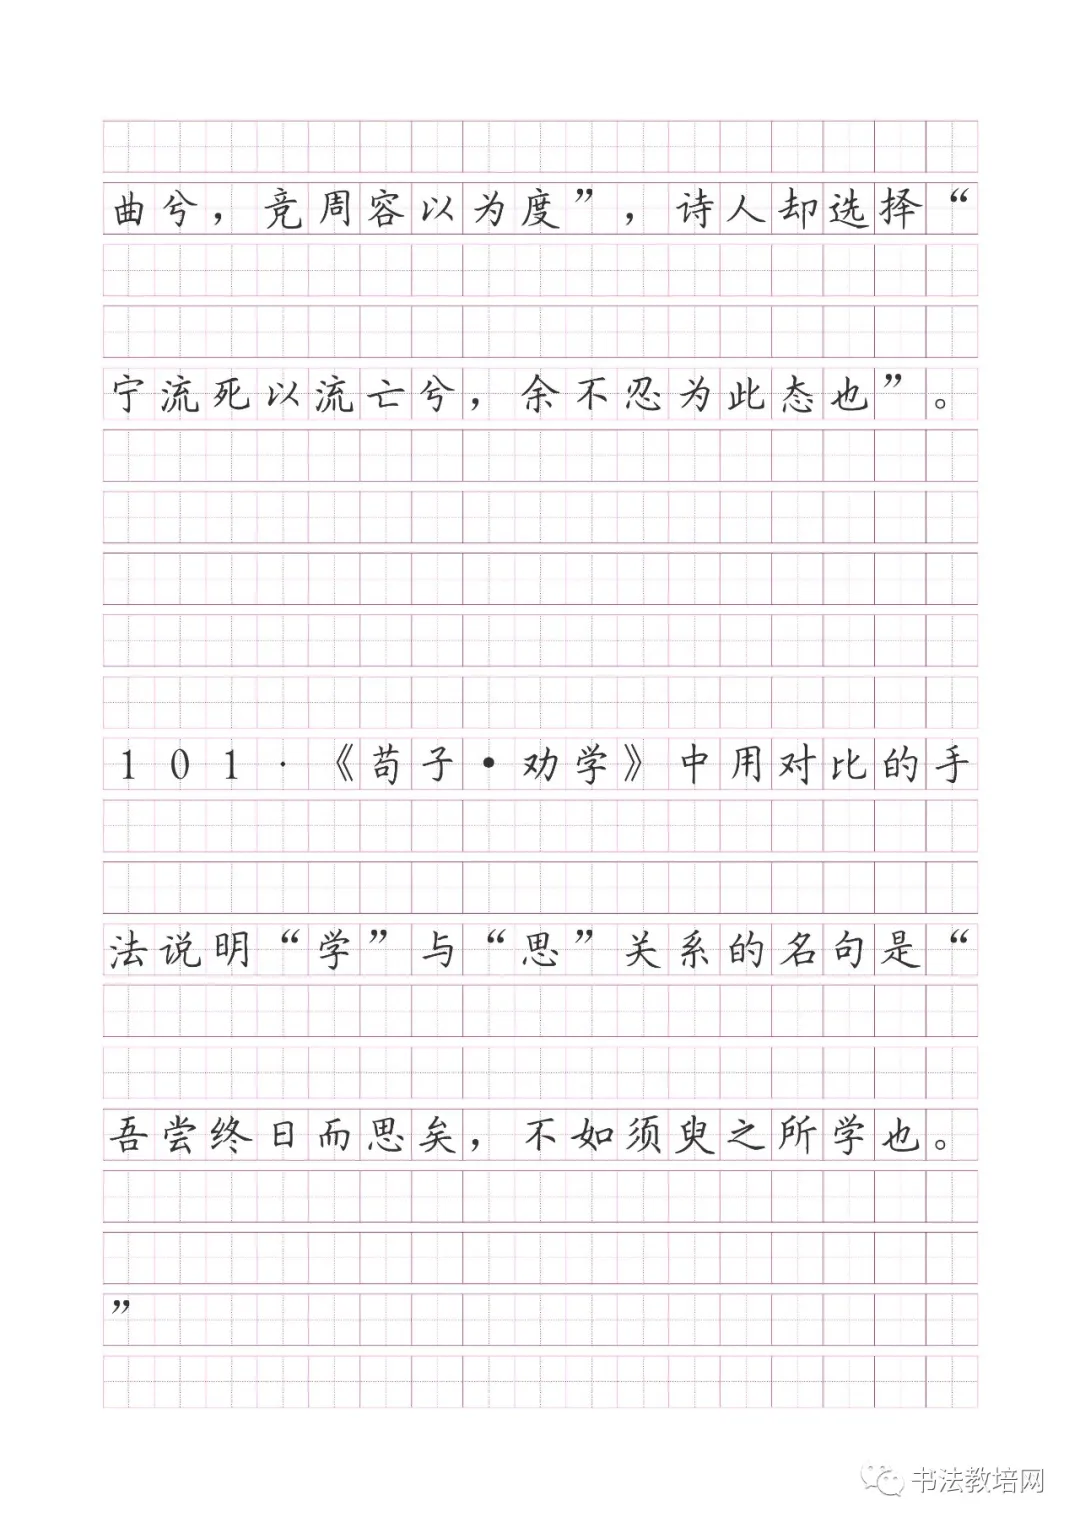 曲兮，竞周容以为度”，诗人却选择“
宁流死以流亡兮，余不忍为此态也”。
101．《苟子•劝学》中用对比的手
法说明“学”与“思”关系的名句是“
吾尝终日而思矣，不如须臾之所学也。
”
书法教培网